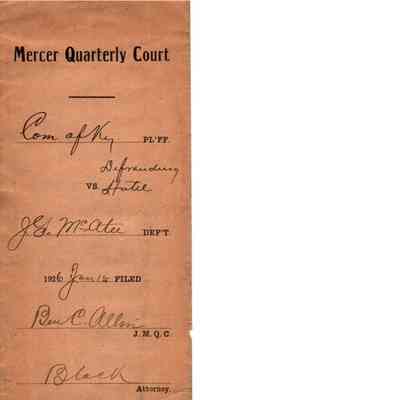 Mercer Quarterly Court
Com of Ky PL'FF.
Defrauding
VS. Hotel
J. G. McAtee DEF'T.
1916 Jan 18 FILED
Ben C. Allin
J. M. Q. C.
Black
Attorney.